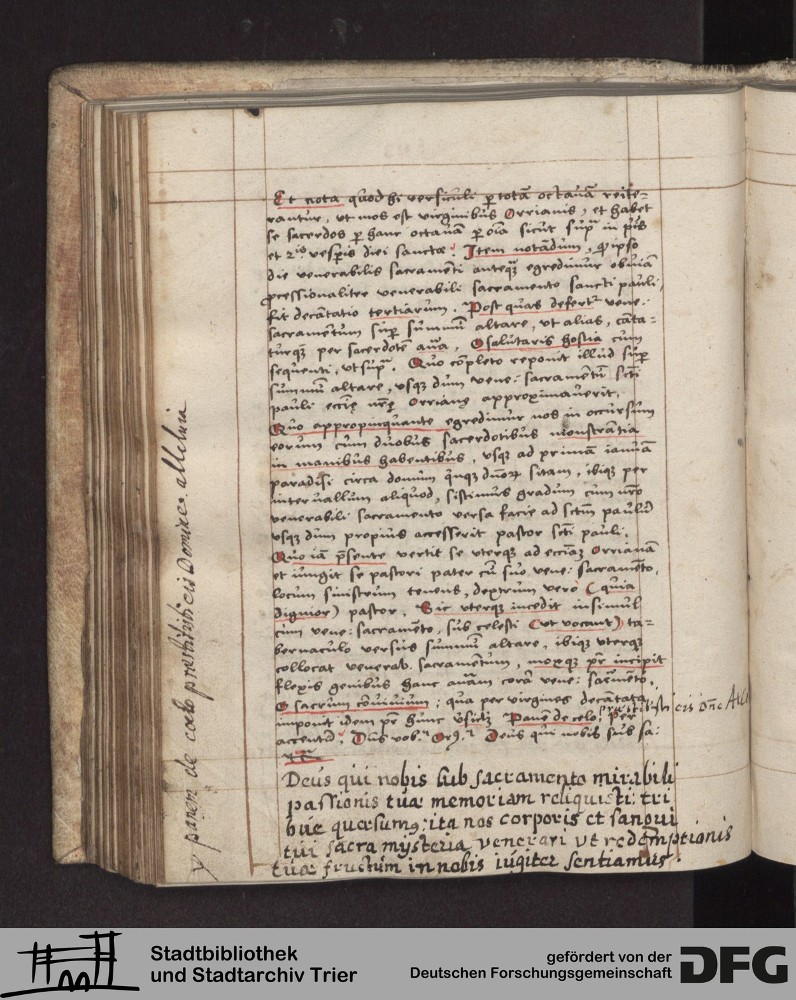 Et nota quod hi versiculi p totã octavã reite=
rantur, ut mos est virginibus Orrianis, et habet
se sacerdos p hanc octavã p oĩa sicut sup^a in p^is
et 2^is vesp̃is diei sanctæ. Item notãdum, φ ipso
die venerabilis sacramẽti anteq̃ egredimur obviã
pcessionaliter venerabili sacramento sancti pauli,
fit decãtatio tertiarum. Post quas defert^r vene:
sacramẽtum sup̃ summũ altare, ut alias, cãta=
turq₃ per sacerdotẽ aũa, O salutaris hostia cum
sequenti, ut sup^a. Quo cõpleto reponit illud sup̃
summũ altare, usq₃ dum vene: sacramẽtũ scti
pauli eccĩę nrę Orrianę appropinquaverit.
Quo appropinquante egredimur nos in occursum
eorum cum duobus sacerdotibus monstrantia
in manibus habentibus, usq₃ ad primã ianuã
paradisi circa domum q̃nq₃ dñorũ sitam, ibiq₃ per
intervallum aliquod, sistimus gradum cum nr̃o
venerabili sacramento versa facie ad sctm̃ paulũ
usq₃ dum propius accesserit pastor scti pauli.
Quo iã p̃sente vertit se uterq₃ ad ecciam Orrianã
et iungit se pastori pater cũ suo vene: sacramẽto,
locum sinistrum tenens, dextrum vero (quia
dignior) pastor. Sic uterq₃ incedit insimul
cum vene: sacramẽto, sub celesti (ut vocant) ta=
bernaculo versus summũ altare, ibiq₃ uterq₃
collocat venerab. sacramẽtum, moxq₃ pr̃ incipit
flexis genibus hanc aũam corã vene: sacr̃mẽto.
O sacrum cõuiuium; qua per virgines decãtata
imponit idem pr̃ hunc v̑sic̑ Panẽ de celo, p̃stitisti eis Dñe All
accentid. Dñs vob. Or. Deus qui nobis sub sa:
Deus qui nobis sub sacramento mirabili
passionis tuæ memoriam reliquisti: tri
bue quæsumus: ita nos corporis et sangui
tui sacra mysteria venerari ut redemptionis
tuæ fructum in nobis iugiter sentiamus.
V panem de coelo præstitisti eis Domine. alleluia
Stadtbibliothek
und Stadtarchiv Trier
gefördert von der
Deutschen Forschungsgemeinschaft
DFG